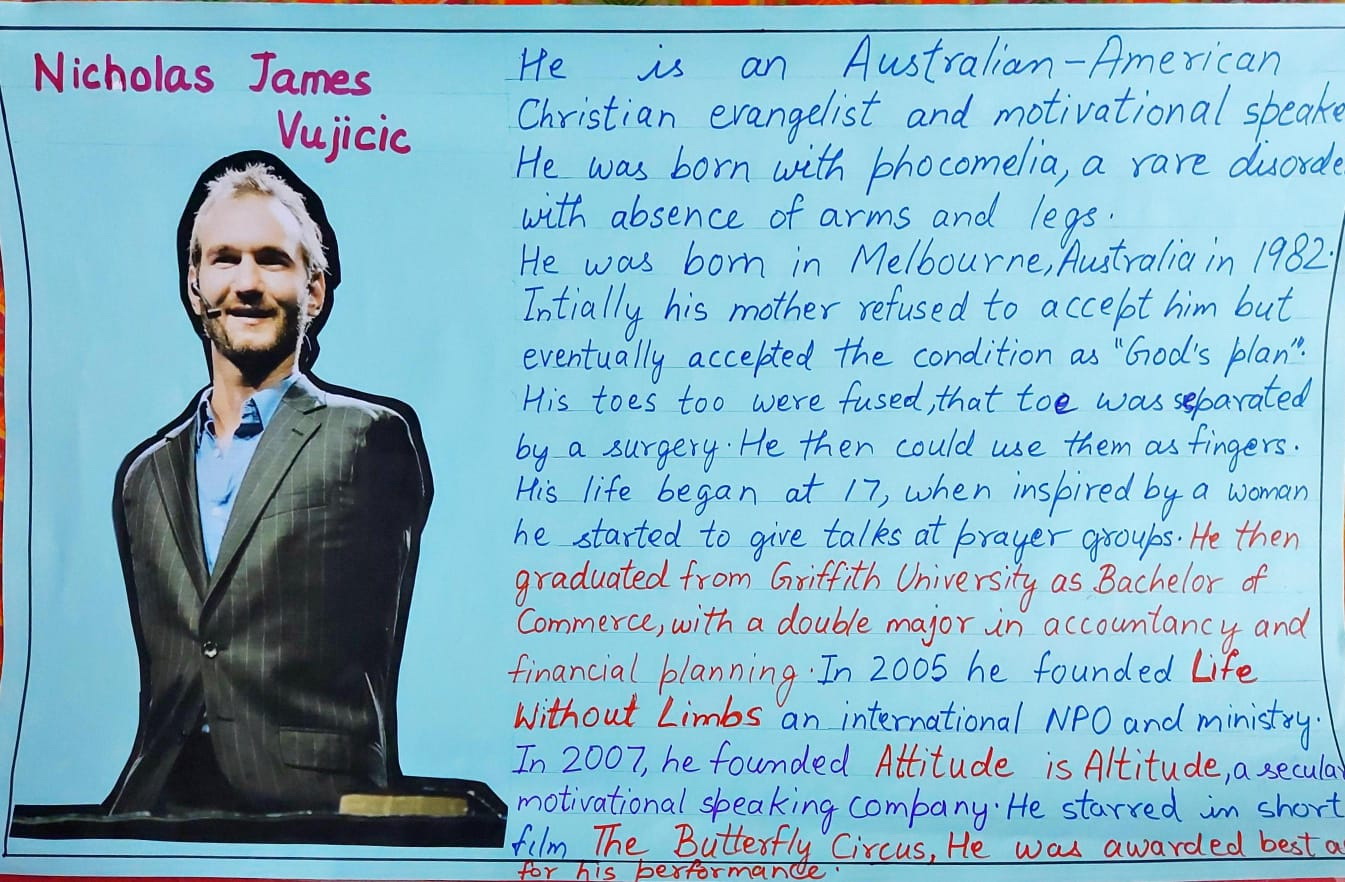 Nicholas James
Vujicic
He is an Australian-American
Christian evangelist and motivational speake
He was born with phocomelia, a rare disorde
with absence of arms and legs.
He was born in Melbourne, Australia in 1982.
Intially his mother refused to accept him but
eventually accepted the condition as "God's plan".
His toes too were fused, that toe was separated
by a surgery. He then could use them as fingers.
His life began at 17, when inspired by a woman
he started to give talks at prayer groups. He then
graduated from Griffith University as Bachelor of
Commerce, with a double major in accountancy and
financial planning. In 2005 he founded Life
Without Limbs an international NPO and ministry.
In 2007, he founded Attitude is Altitude, a secula
motivational speaking company. He starred in short
film The Butterfly Circus, He was awarded best a
for his performance.